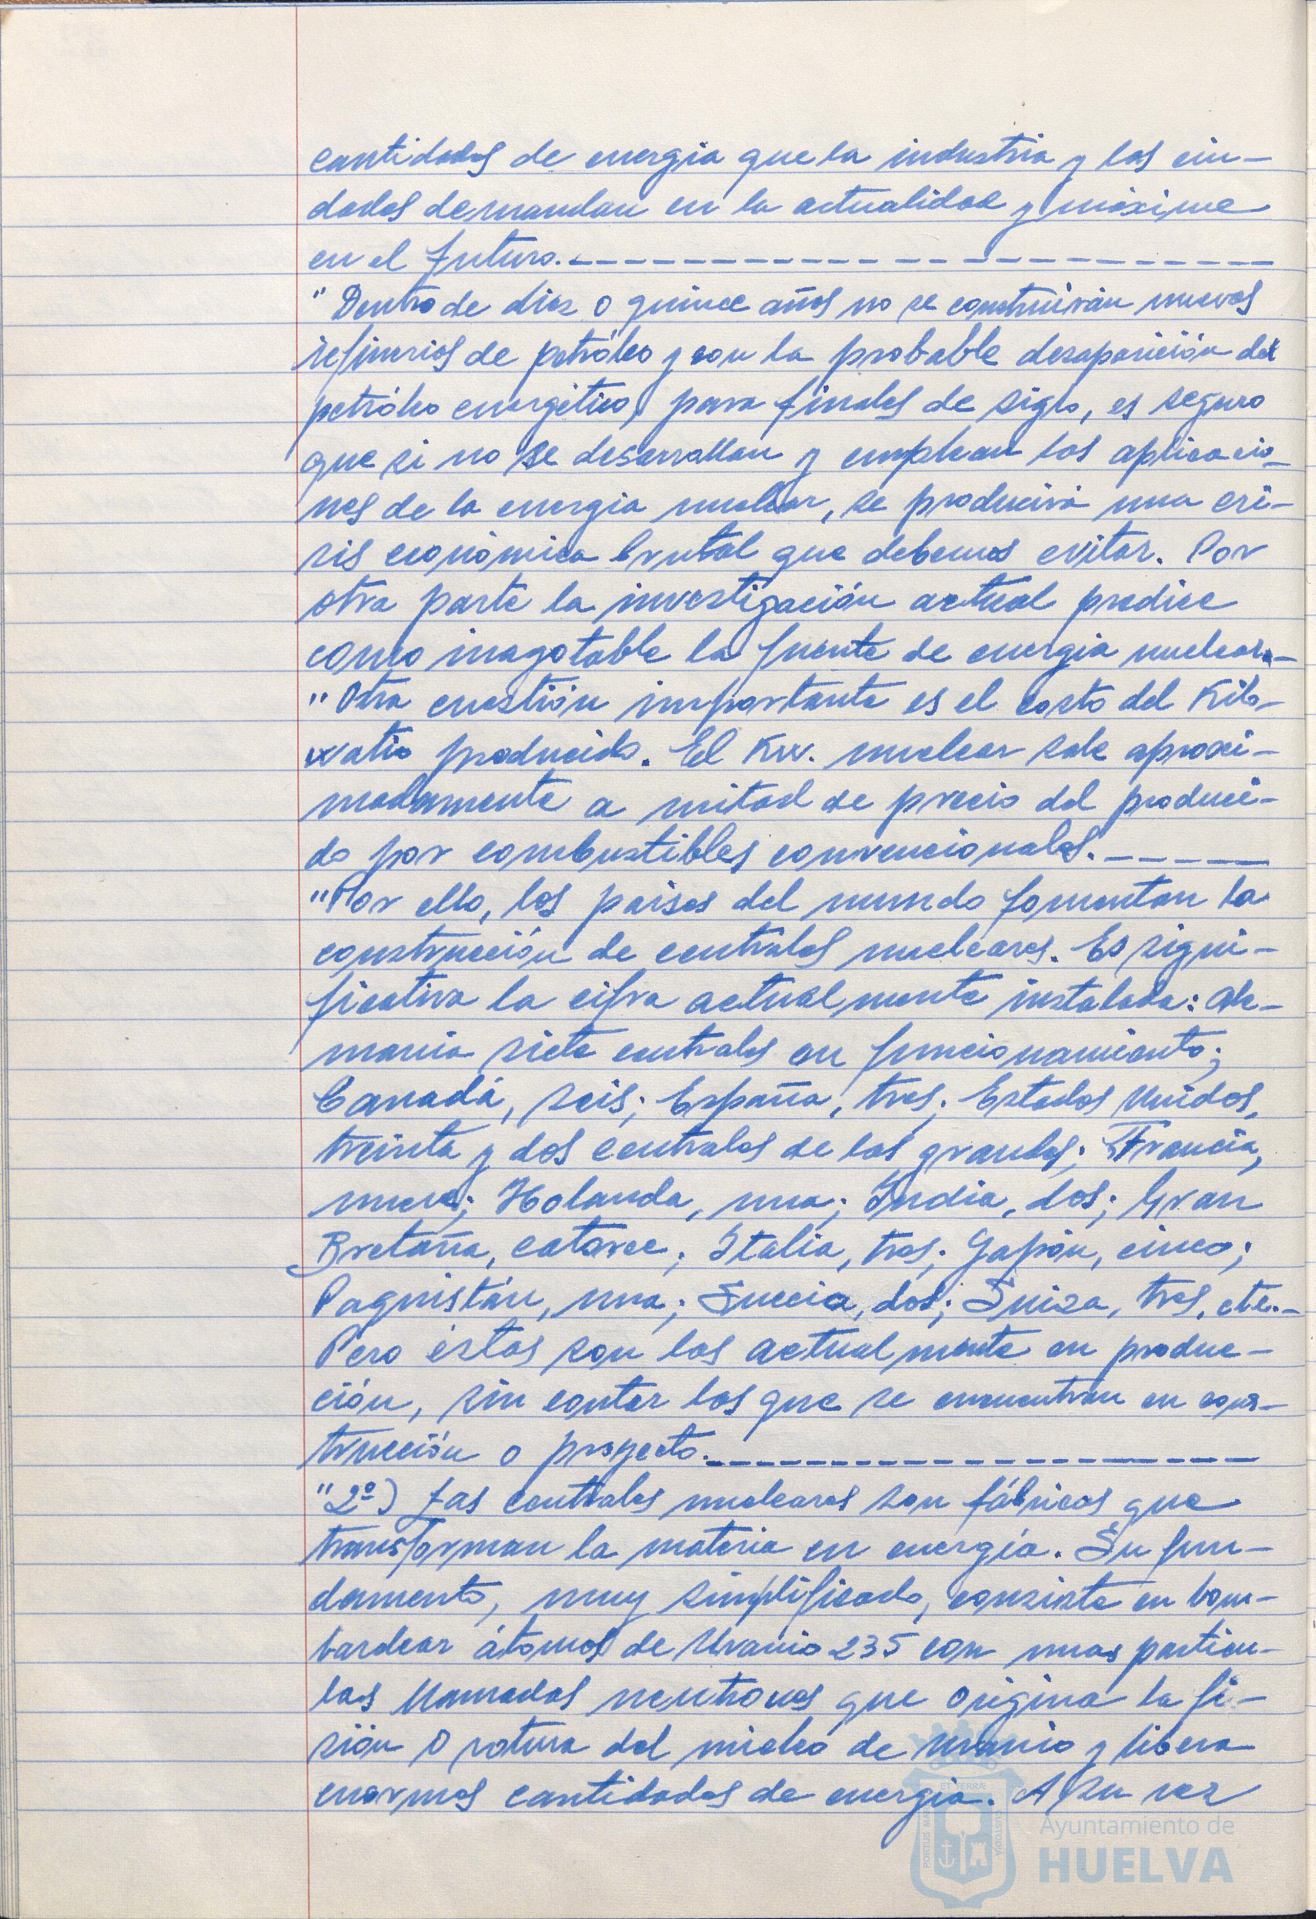 cantidades de energia que la industria y las ciu-
dades demandan en la actualidad y máxime
en el futuro.-----------------------
"Dentro de diez o quince años no se construirán nuevas
refinerias de petróleo y con la probable desaparición del
petróleo energético, para finales de siglo, es seguro
que si no se desarrollan y emplean las aplicacio-
nes de la energia nuclear, se producirá una cri-
sis económica brutal que debemos evitar. Por
otra parte la investigación actual predice
como inagotable la fuente de energia nuclear.-
"Otra cuestión importante es el costo del Kilo-
watio producido. El Kw. nuclear sale aproxi-
madamente a mitad de precio del produci-
do por combustibles convencionales.-----
"Por ello, los paises del mundo fomentan la
construcción de centrales nucleares. Es signi-
ficativa la cifra actualmente instalada: Ale-
mania siete centrales en funcionamiento;
Canadá, seis; España, tres; Estados Unidos,
treinta y dos centrales de las grandes; Francia,
nueve; Holanda, una; India, dos; Gran
Bretaña, catorce; Italia, tres; Japón, cinco;
Paquistán, una; Suecia, dos; Suiza, tres, etc.-
Pero éstas son las actualmente en produc-
ción, sin contar las que se encuentran en cons-
trucción o proyecto.-------------------
"2º) Las centrales nucleares son fábricas que
transforman la materia en energia. Su fun-
damento, muy simplificado, consiste en bom-
bardear átomos de Uranio 235 con unas particu-
las llamadas neutrones que origina la fi-
sión o rotura del núcleo de Uranio y libera
enormes cantidades de energia. A su vez
Ayuntamiento de
HUELVA